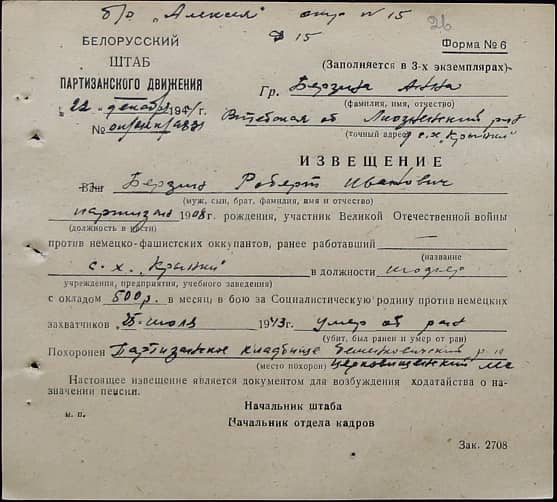 б/о "Алексея" опер N 15
26
15
БЕЛОРУССКИЙ
ШТАБ
ПАРТИЗАНСКОГО ДВИЖЕНИЯ
"22" декабря 194 г.
№
Форма № 6
(Заполняется в 3-х экземплярах)
Гр. Берзина Анна
(фамилия, имя, отчество)
Витебская об Лиозненский р-н
(точный адрес) с.х "Крынки"
ИЗВЕЩЕНИЕ
Ваш Берзин Роберт Иванович
(муж, сын, брат, фамилия, имя и отчество)
партизан 1908г. рождения, участник Великой Отечественной войны
(должность в части)
против немецко-фашистских оккупантов, ранее работавший —
(название
с.х. "Крынки" в должности шофер
учреждения, предприятия, учебного заведения)
с окладом 500р. в месяц, в бою за Социалистическую родину против немецких
захватчиков 25 июля 1943г. умер от ран
(убит, был ранен и умер от ран)
Похоронен Партизанское кладбище Бешенковичский р-н
(место похорон) Церковищенский
Настоящее извещение является документом для возбуждения ходатайства о на-
значении пенсии.
Начальник штаба
м. п.
Начальник отдела кадров
Зак. 2708